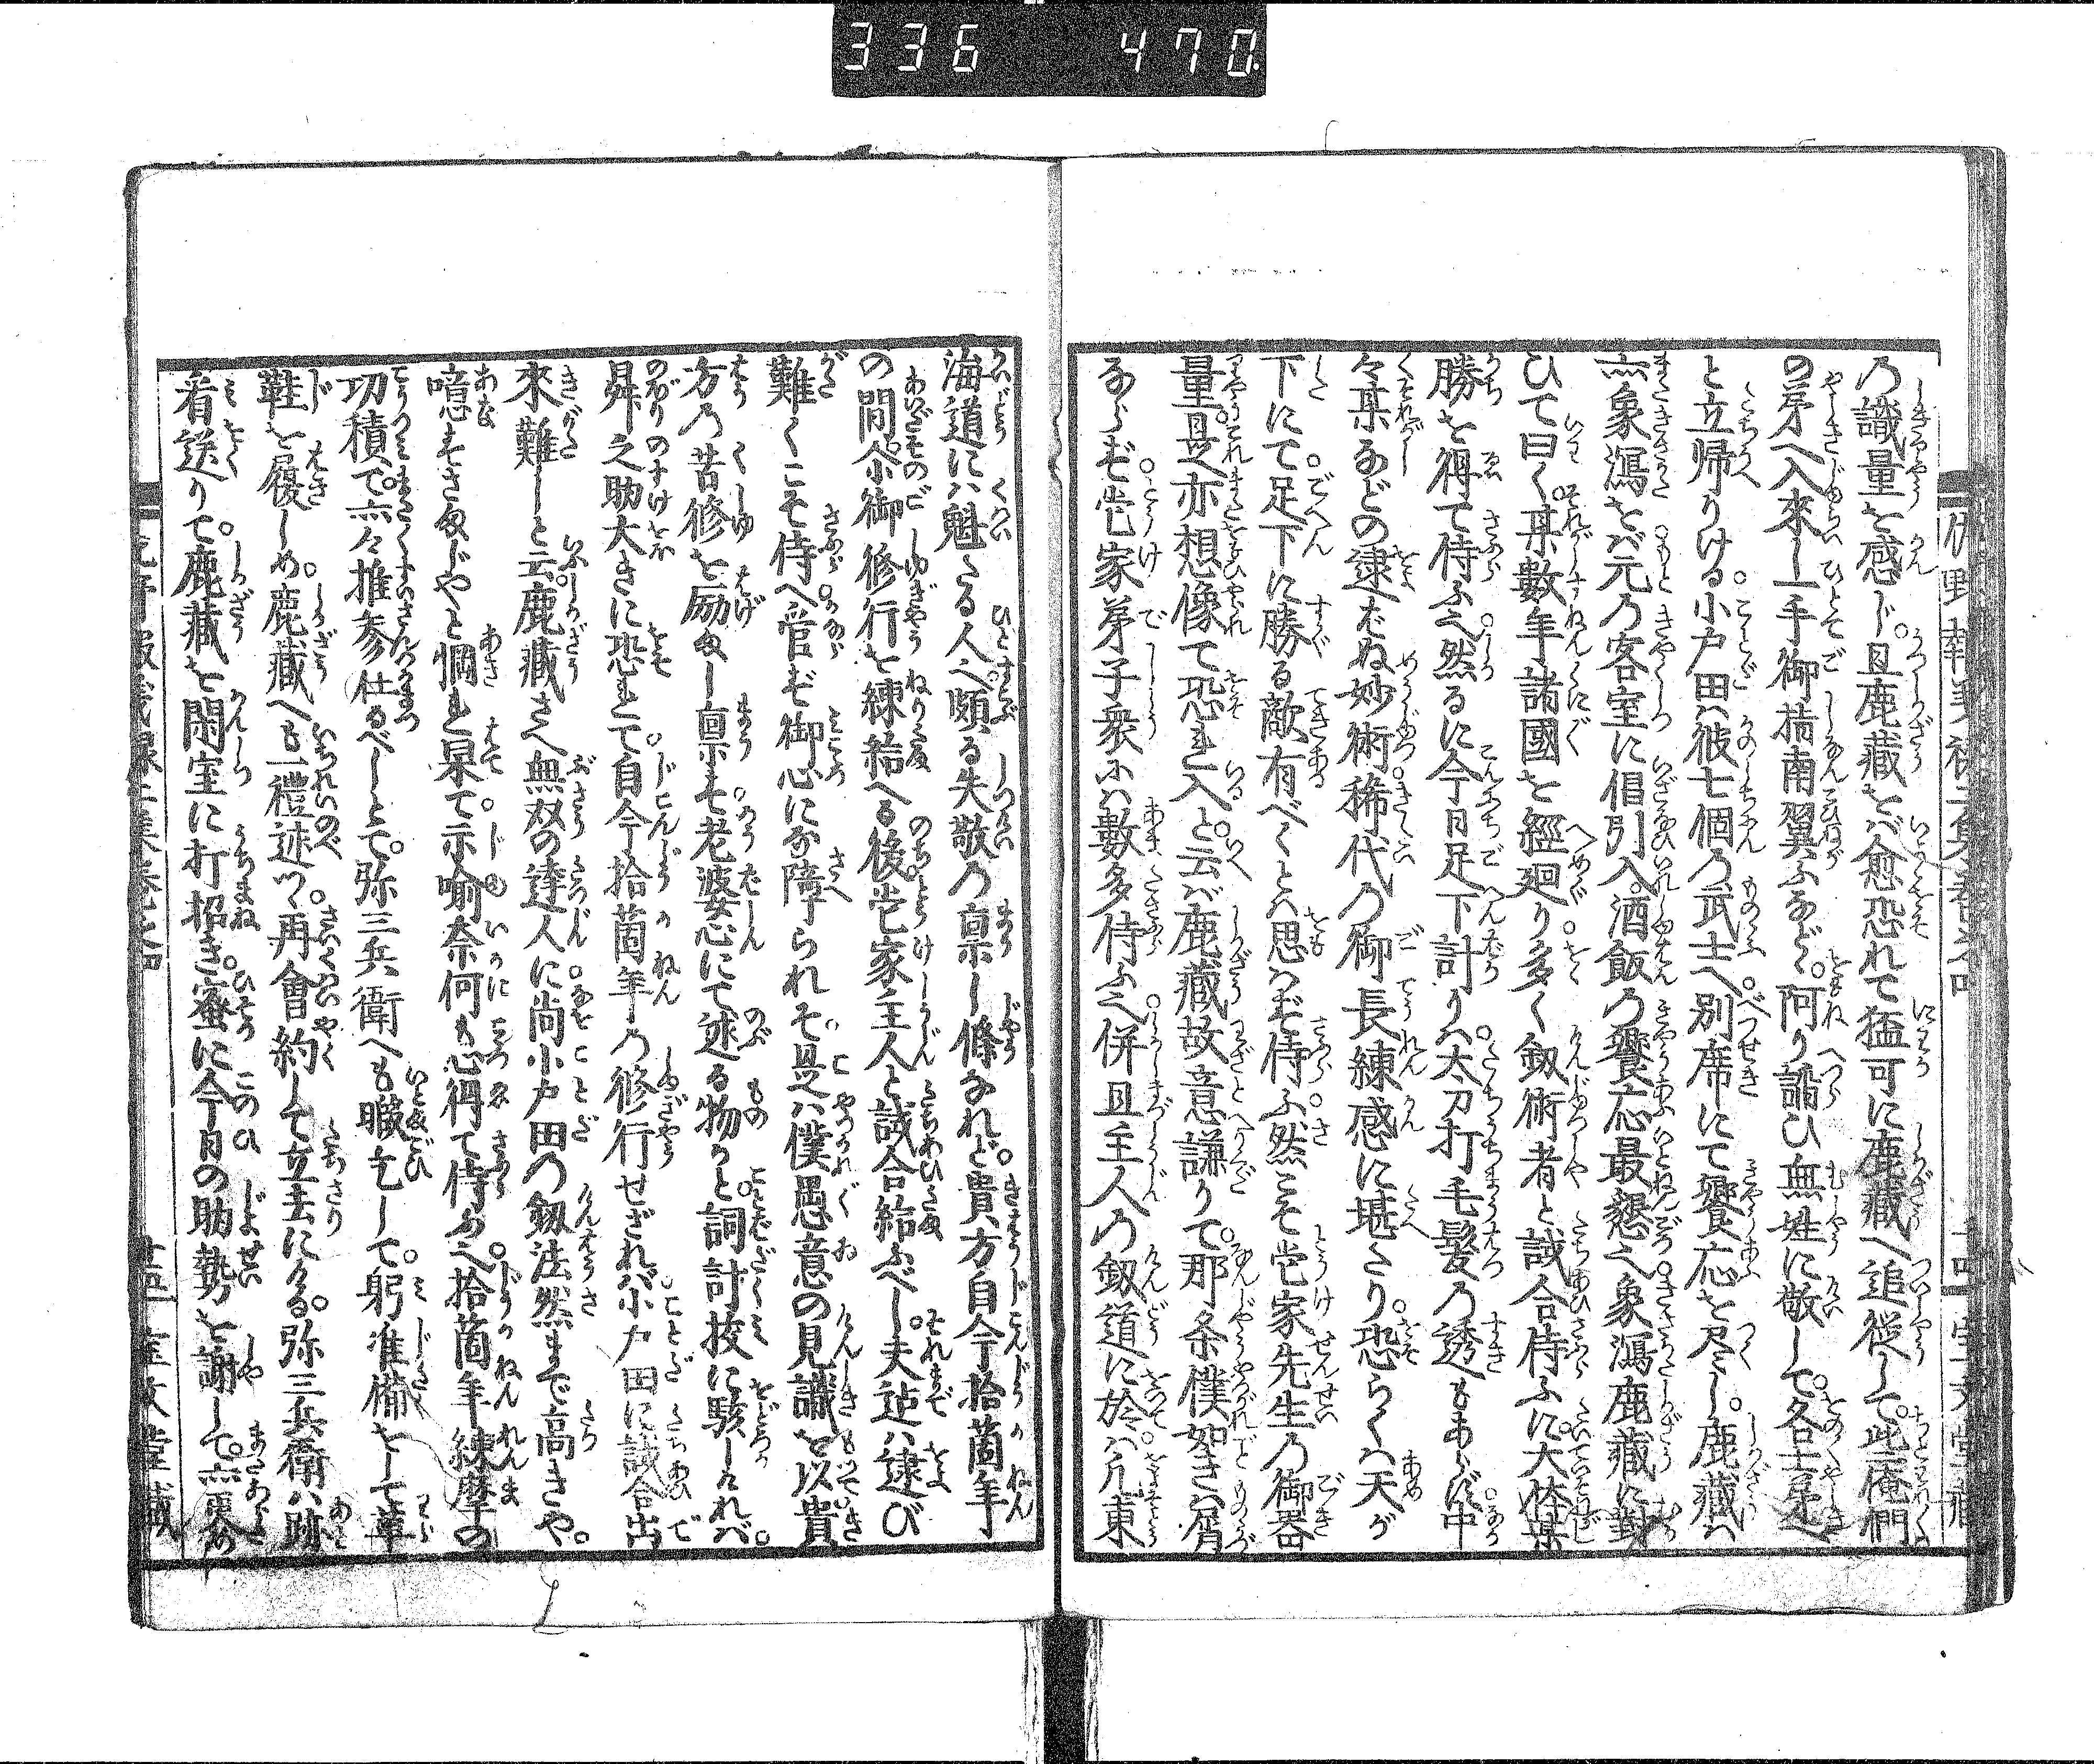 336 470
乃識量を感じ。且鹿藏をバ愈恐れて猛可に鹿藏へ追従して。此俺們
の茅へ入來し一手御指南翼ふなど。阿り諂ひ無姓に敬して。各主茅へ
と立帰りける。小戸田ハ彼七個乃武士へ別席にて饗応を尽し。鹿藏ハ
亦象瀉をバ元乃客室に倡引入。酒飯乃饗応最懇之象瀉鹿藏に對
ひて曰く。某數年諸國を經廻り。多く釼術者と試合侍ふに。大体某
勝を得て侍ふ之。然るに今日足下計りハ。太刀打毛髪乃透もあらバ。中
々某などの逮ばぬ妙術。稀代乃御長練感に堪たり。恐らくハ天が
下にて。足下に勝る敵有べくとハ思ハず侍ふ。然こそ當家先生乃御器
量。是亦想像て恐れ入と。云バ鹿藏故意謙りて。那条僕如きハ屑
ならず。當家弟子衆にハ數多侍ふ之。併且主人乃釼道に於ハ。凡東
海道にハ魁たる人之。頗る失敬乃禀し條なれど。貴方自今拾箇年
の間。尓御修行を練給へる後。當家主人と試合給ふべし。夫迠ハ逮び
難くこそ侍へ。管ず御心にな障られそ。是ハ僕愚意の見識を以。貴
方乃苦修を励ませ禀す。老婆心にて述る物かと。詞討挍に駭しけれバ。
舜之助大きに恐れて。自今拾箇年乃修行せざれバ。小戸田に試合出
來難しと云。鹿藏さへ無双の達人に。尚小戸田乃釼法然まで高きや。
噫すさまじやと惘れ果て。示喻奈何も心得て侍ふ之。拾箇年練摩の
切積て。亦々推参仕るべしとて。弥三兵衛へも暇乞して。躬准備をして草
鞋を履しめ。鹿藏へも一禮述つ。再會約して立去にける。弥三兵衛ハ跡
看送りて。鹿藏を閑室に打招き。蜜に今日の助勢を謝して。亦更め